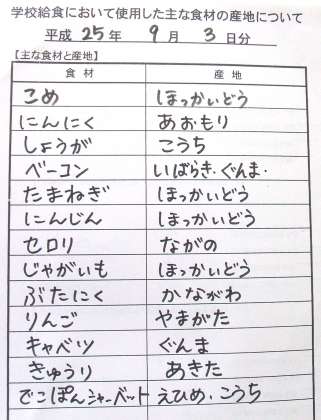 学校給食において使用した主な食材の産地について
平成 25 年 9 月 3 日分
【主な食材と産地】
食材 産地
こめ ほっかいどう
にんにく あおもり
しょうが こうち
ベーコン いばらき・ぐんま・
たまねぎ ほっかいどう
にんじん ほっかいどう
セロリ ながの
じゃがいも ほっかいどう
ぶたにく かながわ
りんご やまがた
キャベツ ぐんま
きゅうり あきた
でこぽんシャーベット えひめ、こうち